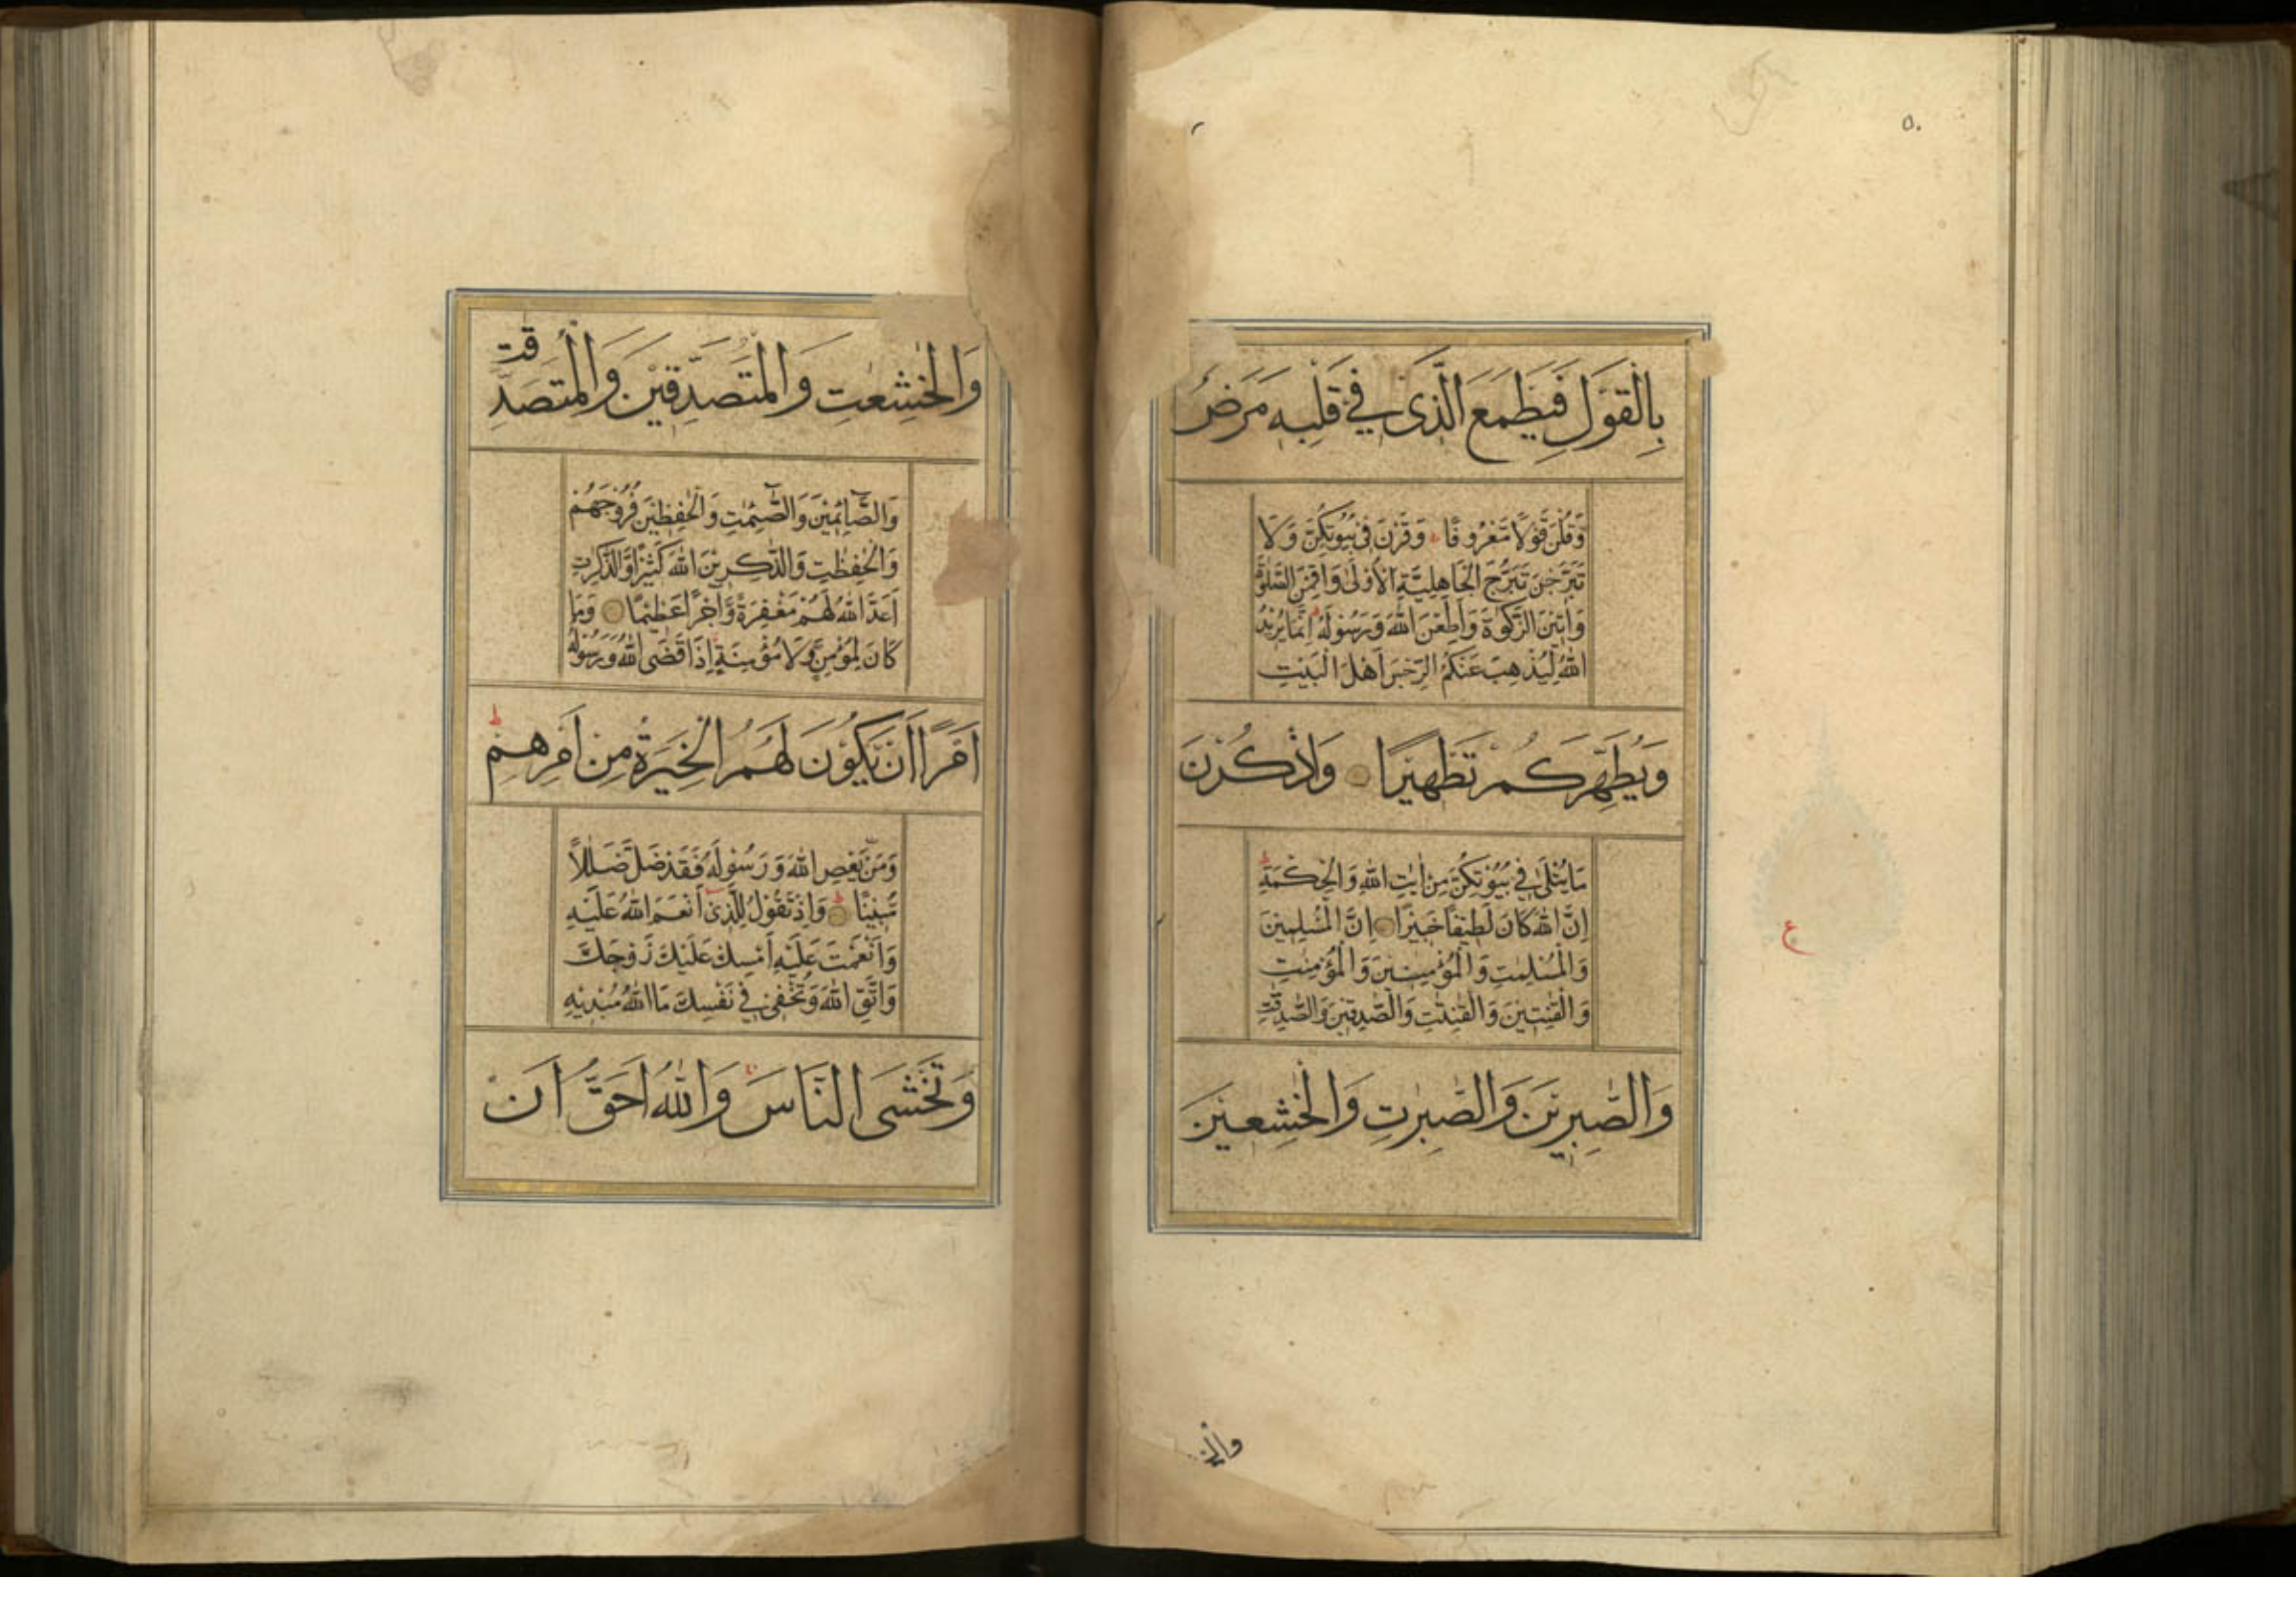 ٥٠
بِالْقَوْلِ فَيَطْمَعَ الَّذِى فِى قَلْبِهٖ مَرَضٌ
وَقُلْنَ قَوْلًا مَعْرُوفًا وَقَرْنَ فِى بُيُوتِكُنَّ وَلَا
تَبَرَّجْنَ تَبَرُّجَ الْجَاهِلِيَّةِ الْأُولٰى وَأَقِمْنَ الصَّلٰوةَ
وَاٰتِيْنَ الزَّكٰوةَ وَأَطِعْنَ اللّٰهَ وَرَسُوْلَهُ اِنَّمَا يُرِيْدُ
اللّٰهُ لِيُذْهِبَ عَنْكُمُ الرِّجْسَ اَهْلَ الْبَيْتِ
وَيُطَهِّرَكُمْ تَطْهِيْرًا وَاذْكُرْنَ
مَا يُتْلٰى فِى بُيُوْتِكُنَّ مِنْ اٰيٰتِ اللّٰهِ وَالْحِكْمَةِ ط
اِنَّ اللّٰهَ كَانَ لَطِيْفًا خَبِيْرًا اِنَّ الْمُسْلِمِيْنَ
وَالْمُسْلِمٰتِ وَالْمُؤْمِنِيْنَ وَالْمُؤْمِنٰتِ
وَالْقٰنِتِيْنَ وَالْقٰنِتٰتِ وَالصّٰدِقِيْنَ وَالصّٰدِقٰتِ
وَالصّٰبِرِيْنَ وَالصّٰبِرٰتِ وَالْخٰشِعِيْنَ
ع
وَالْخٰشِعٰتِ وَالْمُتَصَدِّقِيْنَ وَالْمُتَصَدِّقٰتِ
وَالصَّآئِمِيْنَ وَالصّٰٓئِمٰتِ وَالْحٰفِظِيْنَ فُرُوْجَهُمْ
وَالْحٰفِظٰتِ وَالذّٰكِرِيْنَ اللّٰهَ كَثِيْرًا وَّالذّٰكِرٰتِ
اَعَدَّ اللّٰهُ لَهُمْ مَغْفِرَةً وَّاَجْرًا عَظِيْمًا وَمَا
كَانَ لِمُؤْمِنٍ وَّلَا مُؤْمِنَةٍ اِذَا قَضَى اللّٰهُ وَرَسُوْلُهُ
اَمْرًا اَنْ يَّكُوْنَ لَهُمُ الْخِيَرَةُ مِنْ اَمْرِهِمْ ط
وَمَنْ يَّعْصِ اللّٰهَ وَرَسُوْلَهُ فَقَدْ ضَلَّ ضَلٰلًا
مُّبِيْنًا ط وَاِذْ تَقُوْلُ لِلَّذِىْ اَنْعَمَ اللّٰهُ عَلَيْهِ
وَاَنْعَمْتَ عَلَيْهِ اَمْسِكْ عَلَيْكَ زَوْجَكَ
وَاتَّقِ اللّٰهَ وَتُخْفِىْ فِى نَفْسِكَ مَا اللّٰهُ مُبْدِيْهِ
وَتَخْشَى النَّاسَ وَاللّٰهُ اَحَقُّ اَنْ